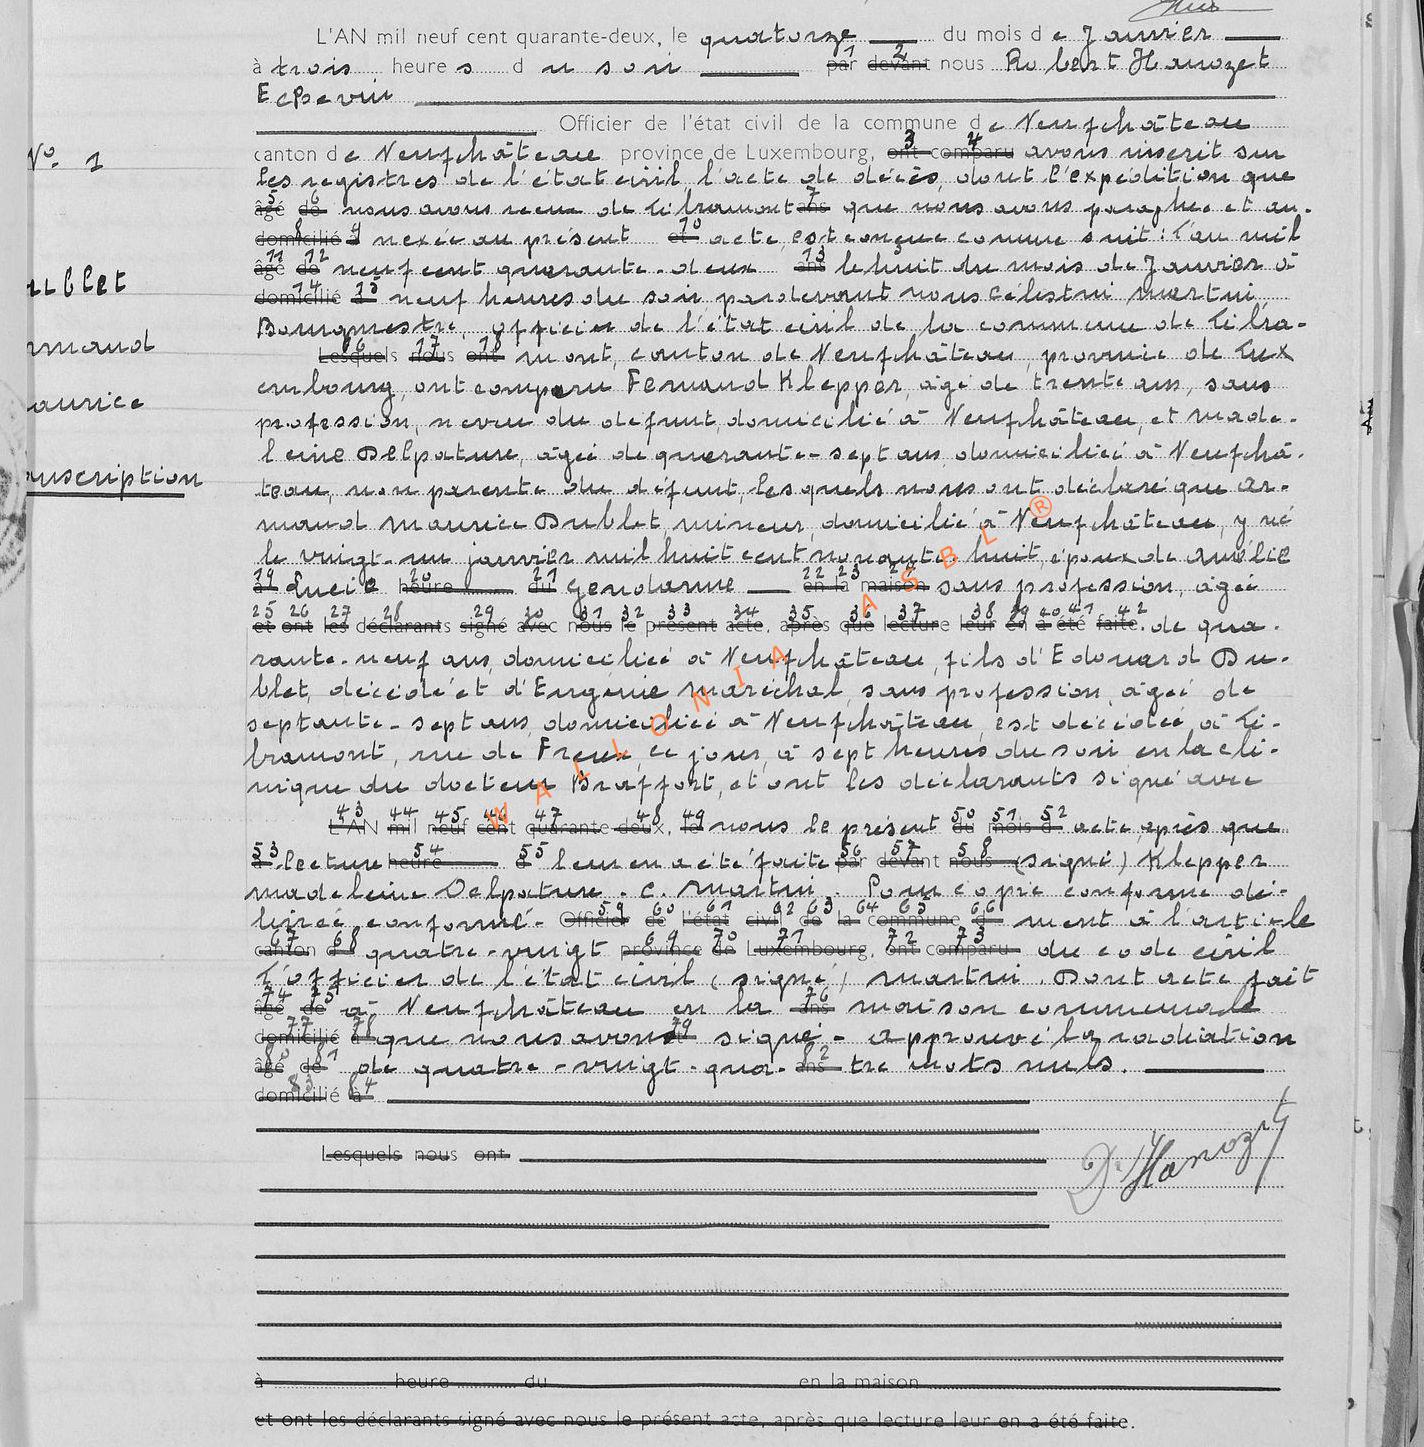 L'AN mil neuf cent quarante-deux, le quatorze du mois de Janvier
à trois heures du soir par 1 devant 2 nous Robert Hanozet
Echevin
Officier de l'état civil de la commune de Neufchâteau
No. 1
canton de Neufchâteau province de Luxembourg, ont 3 comparu 4 avons inscrit sur
les registres de l'état civil l'acte de décès, dont l'expédition que
âgé 5 de 6 nous avons recue de Libramont ans 7 que nous avons paraphée et an-
domicilié 8 à 9 nexée au présent et 10 acte, est conçue comme suit : L'an mil
ublet
âgé 11 de 12 neuf cent quarante-deux ans 13 le huit du mois de Janvier à
domicilié 14 à 15 neuf heures du soir pardevant nous Célestin Martin
Bourgmestre, officier de l'état civil de la commune de Libra-
rmand
Lesquels 16 nous 17 ont 18 mont, canton de Neufchâteau, province de Lux
embourg, ont comparu Fernand Klepper, âgé de trente ans, sans
aurice
profession, neveu du défunt, domicilié à Neufchâteau, et Made-
leine Delpature, âgée de quarante-sept ans, domiciliée à Neufchâ-
anscription
teau, non parente du défunt, lesquels nous ont déclaré que Ar-
mand Maurice Dublet, mineur, domicilié à Neufchâteau, y né
le vingt-un janvier mil huit cent nonante-huit, époux de Amélie
à 19 Lucie heure 20 du 21 Gendarme en 22 la 23 maison 24 sans profession, âgée
et 25 ont 26 les 27 déclarants 28 signé 29 avec 30 nous 31 le 32 présent 33 acte, 34 après 35 que 36 lecture 37 leur 38 en 39 a 40 été 41 faite 42. de qua-
rante-neuf ans, domiciliée à Neufchâteau, fils d'Edouard Du-
blet, décédé et d'Eugénie Maréchal, sans profession, âgée de
septante-sept ans, domiciliée à Neufchâteau, est décédé, à Li-
bramont, rue de Freux, ce jour, à sept heures du soir en la cli-
nique du docteur Braffort, et ont les déclarants signé avec
L'AN 43 mil 44 neuf 45 cent 46 quarante 47-deux, 48 le 49 nous le présent du 50 mois 51 d 52 acte, après que
à 53 lecture heure 54 d 55 leur en a été faite par 56 devant 57 nous 58 (signé) Klepper
Madeleine Delpature. C. Martin. Pour copie conforme dé-
livrée conformé- Officier 59 de 60 l'état 61 civil 62 de 63 la 64 commune 65 d 66 ment à l'article
canton 67 d 68 quatre-vingt province 69 de 70 Luxembourg, 71 ont 72 comparu 73 du code civil
L'officier de l'état civil (signé) Martin. Dont acte fait
âgé 74 de 75 à Neufchâteau en la ans 76 maison communale
domicilié 77 à 78 que nous avons et 79 signé - approuvé la radiation
âgé 80 de 81 de quatre-vingt-qua- ans 82 tre mots nuls.
domicilié 83 à 84
Lesquels nous ont
Dr Hanozet
à heure du en la maison
et ont les déclarants signé avec nous le présent acte, après que lecture leur en a été faite.
WALLONIA ASBL ®